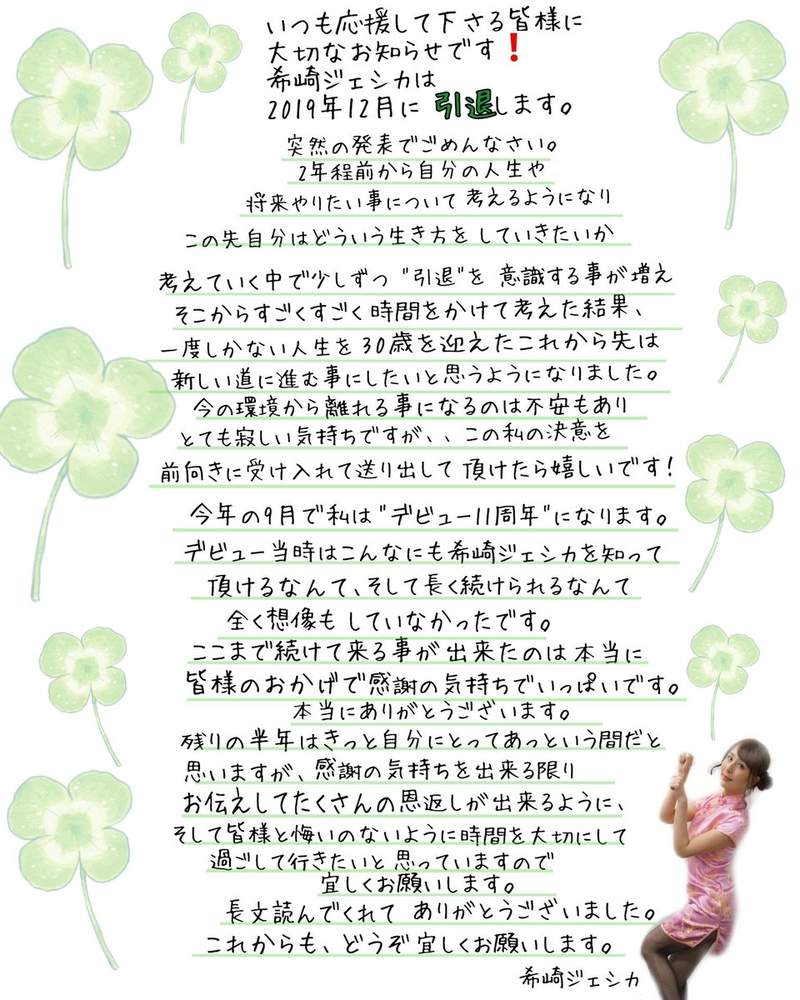 いつも応援して下さる皆様に
大切なお知らせです❗
希崎ジェシカは
2019年12月に 引退します。
突然の発表でごめんなさい。
2年程前から自分の人生や
将来やりたい事について 考えるようになり
この先自分はどういう生き方を していきたいか
考えていく中で少しずつ "引退"を 意識する事が増え
そこからすごくすごく時間をかけて考えた結果、
一度しかない人生を 30歳を迎えたこれから先は
新しい道に進む事にしたいと思うようになりました。
今の環境から離れる事になるのは不安もあり
とても寂しい気持ちですが、、この私の決意を
前向きに受け入れて送り出して 頂けたら嬉しいです!
今年の9月で私は"デビュー11周年"になります。
デビュー当時はこんなにも希崎ジェシカを知って
頂けるなんて、そして長く続けられるなんて
全く想像も していなかったです。
ここまで続けて来る事が 出来たのは本当に
皆様のおかげで感謝の気持ちでいっぱいです。
本当にありがとうございます。
残りの半年はきっと自分にとってあっという間だと
思いますが、感謝の気持ちを出来る限り
お伝えしてたくさんの恩返しが出来るように、
そして皆様と悔いのないように時間を大切にして
過ごして行きたいと思っていますので
宜しくお願いします。
長文読んでくれて ありがとうございました。
これからも、どうぞ宜しくお願いします。
希崎ジェシカ